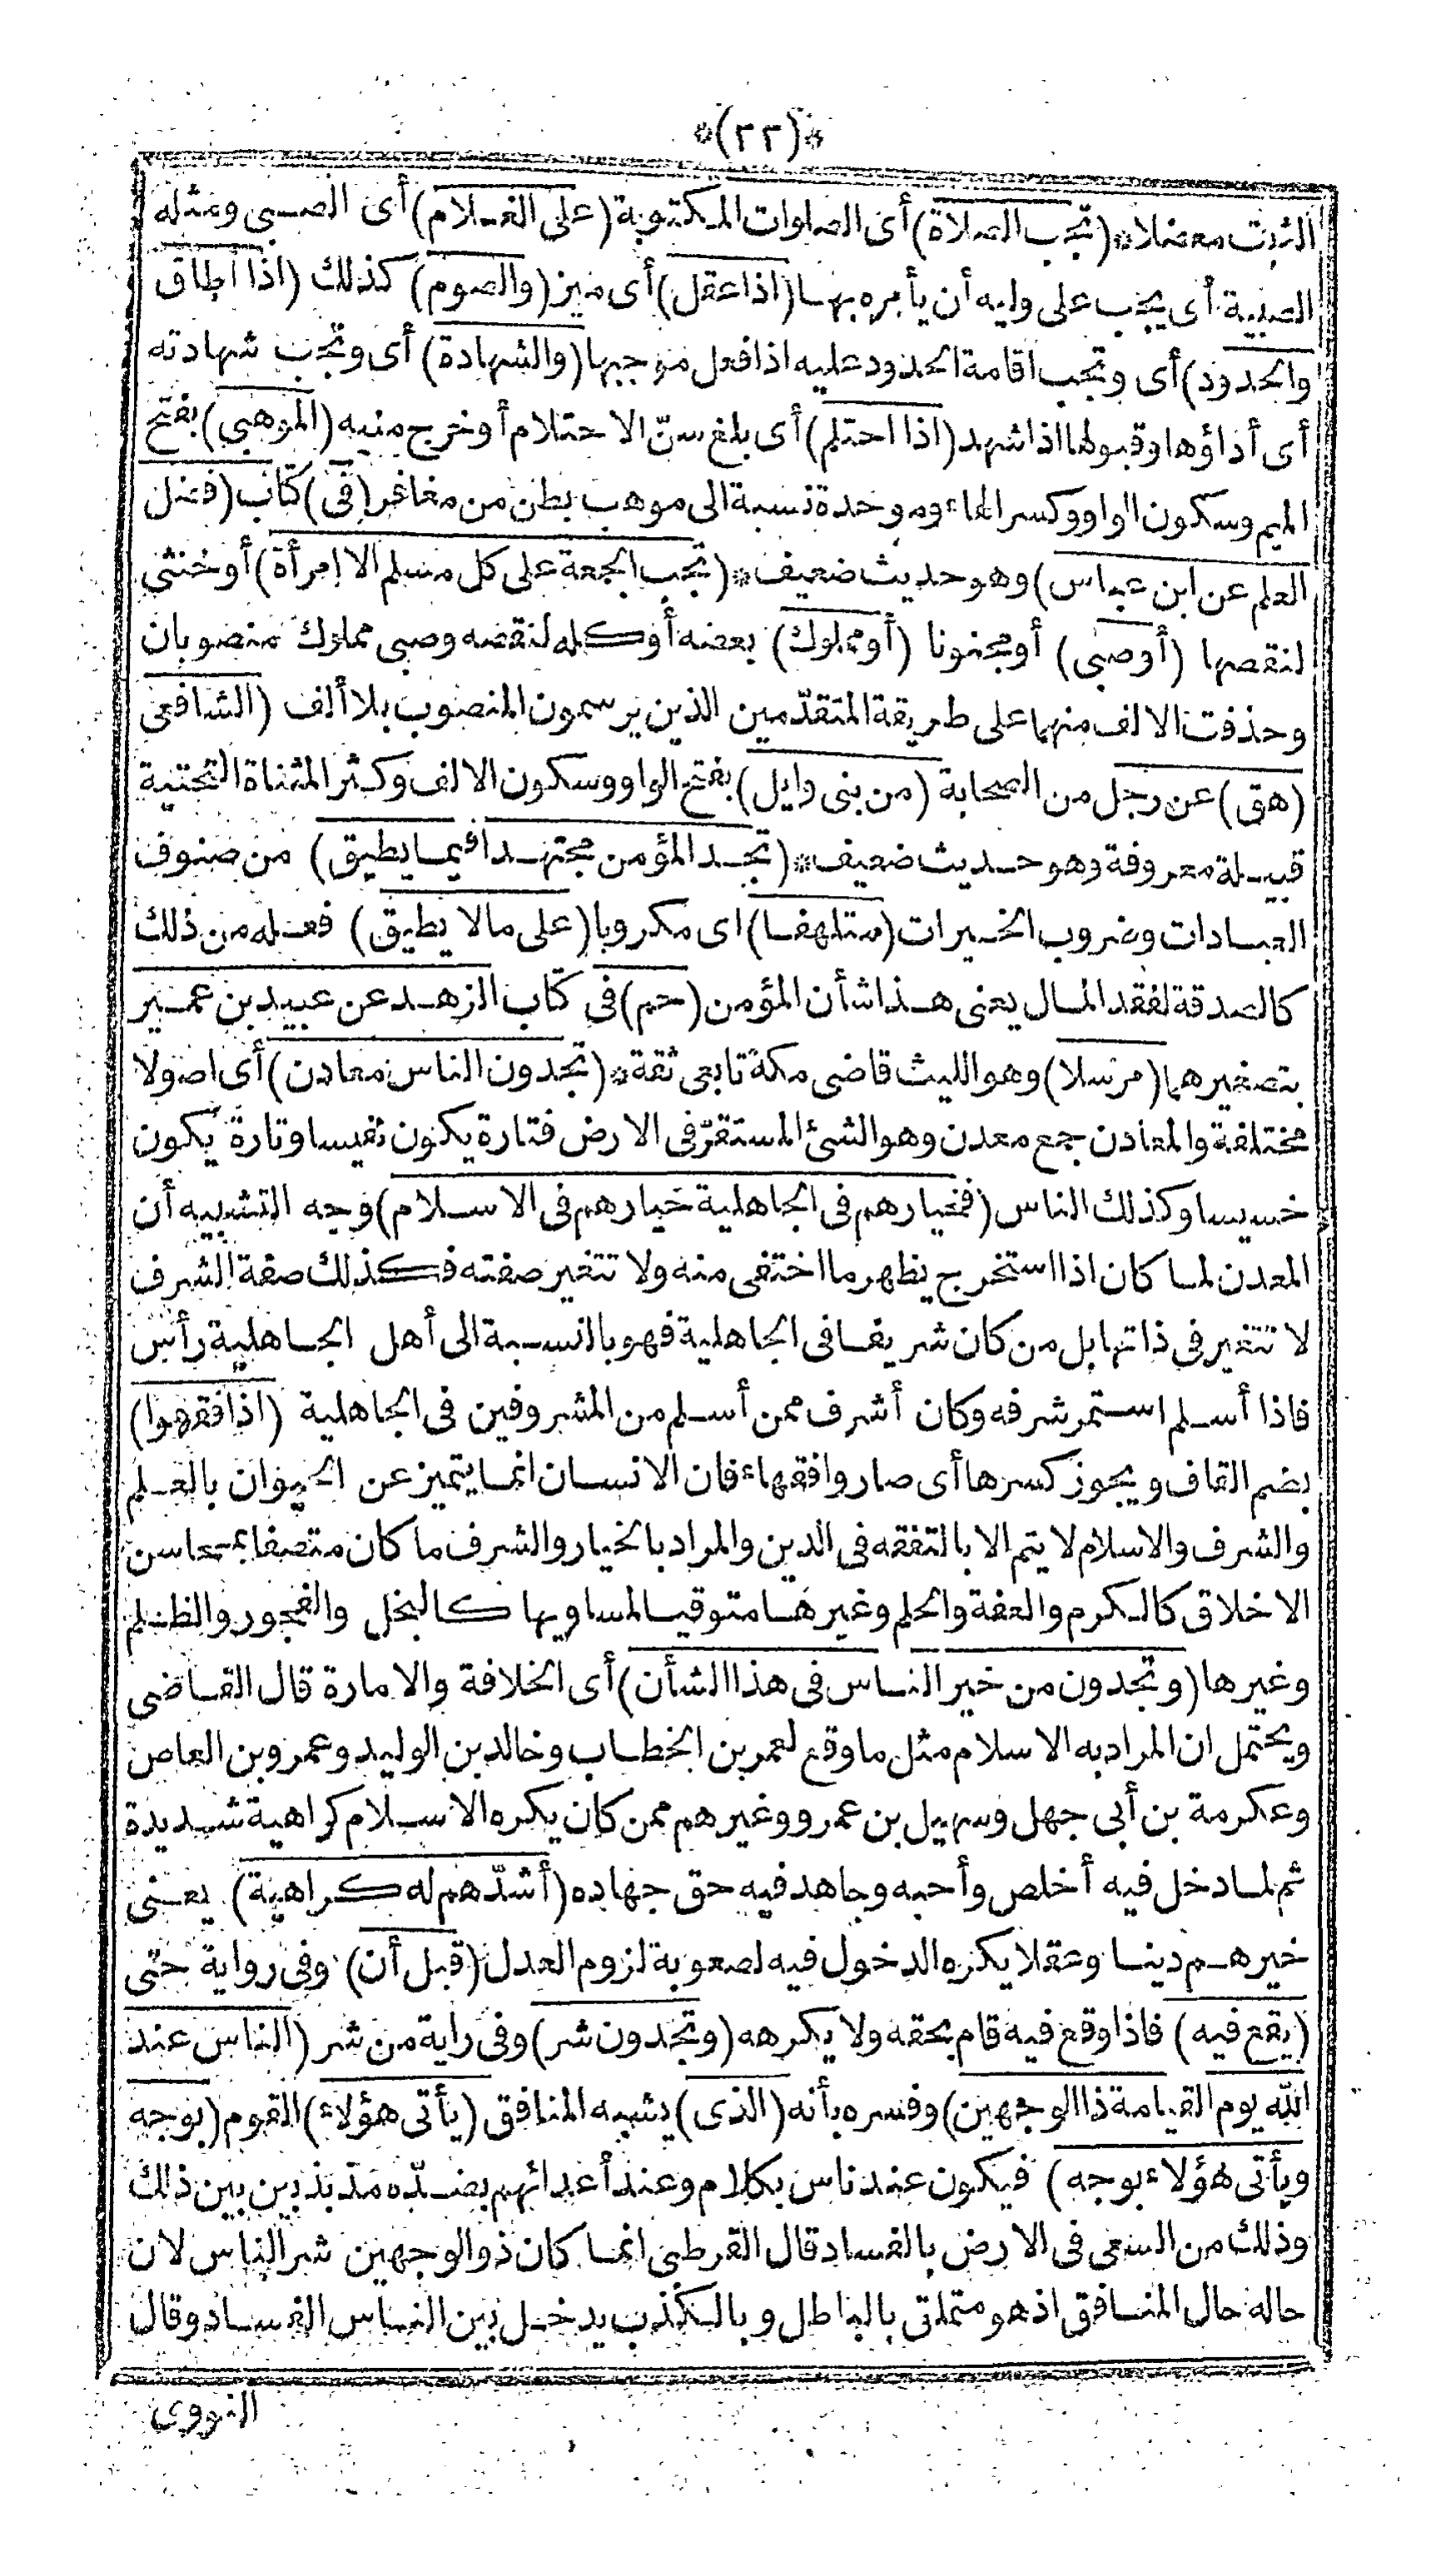 *(٢٢)*
الثبت معضلا *(تجب الصلاة) أى الصلوات المكتوبة (على الغلام) أى الصبى ومثله
الصبية أى يجب على وليه أن يأمره بها (اذا عقل) أى ميز (والصوم) كذلك (اذا أطاق
والحدود) أى وتجب اقامة الحدود عليه اذا فعل موجبها (والشهادة) أى وتجب شهادته
أى أداؤها وقبولها اذا شهد (اذا احتلم) أى بلغ سنّ الاحتلام أو خرج منيه (الموهبى) بفتح
الميم وسكون الواو وكسر الهاء وموحدة نسبة الى موهب بطن من مغافر (فى) كتاب (فضل
العلم عن ابن عباس) وهو حديث ضعيف *(تجب الجمعة على كل مسلم الا امرأة) أو خنثى
لنقصها (أو صبى) أو مجنونا (أو مملوك) بعضه أو كله لنقصه وصبى مملوك منصوبان
وحذفت الالف منهما على طريقة المتقدّمين الذين يرسمون المنصوب بلا ألف (الشافعى
(هق) عن رجل من الصحابة (من بنى وايل) بفتح الواو وسكون الالف وكسر المثناة التحتية
قبيلة معروفة وهو حديث ضعيف *(تجد المؤمن مجتهدا فيما يطيق) من صنوف
العبادات وضروب الخيرات (متلهفا) اى مكروبا (على مالا يطيق) فعله من ذلك
كالصدقة لفقد المال يعنى هذا شأن المؤمن (حم) فى كتاب الزهد عن عبيد بن عمير
بتصغيرهما (مرسلا) وهو الليث قاضى مكة تابعى ثقة *(تجدون الناس معادن) أى اصولا
مختلفة والمعادن جمع معدن وهو الشئ المستقرّ فى الارض فتارة يكون نفيسا وتارة يكون
خسيسا وكذلك الناس (فخيارهم فى الجاهلية خيارهم فى الاسلام) وجه التشبيه أن
المعدن لما كان اذا استخرج يظهر ما اختفى منه ولا تتغير صفته فكذلك صفة الشرف
لا تتغير فى ذاتها بل من كان شريفا فى الجاهلية فهو بالنسبة الى أهل الجاهلية رأس
فاذا أسلم استمر شرفه وكان أشرف ممن أسلم من المشروفين فى الجاهلية (اذا فقهوا)
بضم القاف ويجوز كسرها أى صاروا فقهاء فان الانسان انما يتميز عن الحيوان بالعلم
والشرف والاسلام لا يتم الا بالتفقه فى الدين والمراد بالخيار والشرف ما كان متصفا بمحاسن
الاخلاق كالكرم والعفة والحلم وغيرها متوقيا لمساويها كالبخل والفجور والظلم
وغيرها (وتجدون من خير الناس فى هذا الشأن) أى الخلافة والامارة قال القاضى
ويحتمل ان المراد به الاسلام مثل ما وقع لعمر بن الخطاب وخالد بن الوليد وعمرو بن العاص
وعكرمة بن أبى جهل وسهيل بن عمرو وغيرهم ممن كان يكره الاسلام كراهية شديدة
ثم لما دخل فيه أخلص وأحبه وجاهد فيه حق جهاده (أشدّهم له كراهية) يعنى
خيرهم دينا وعقلا يكره الدخول فيه لصعوبة لزوم العدل (قبل أن) وفى رواية حتى
(يقع فيه) فاذا وقع فيه قام بحقه ولا يكرهه (وتجدون شر) وفى راية من شر (الناس عند
الله يوم القيامة ذا الوجهين) وفسره بأنه (الذى) يشبه المنافق (يأتى هؤلاء) القوم (بوجه
ويأتى هؤلاء بوجه) فيكون عند ناس بكلام وعند أعدائهم بضدّه مذبذبين بين ذلك
وذلك من السعى فى الارض بالفساد قال القرطبى انما كان ذو الوجهين شر الناس لان
حاله حال المنافق اذ هو متملق بالباطل وبالكذب يدخل بين الناس الفساد وقال
النووى